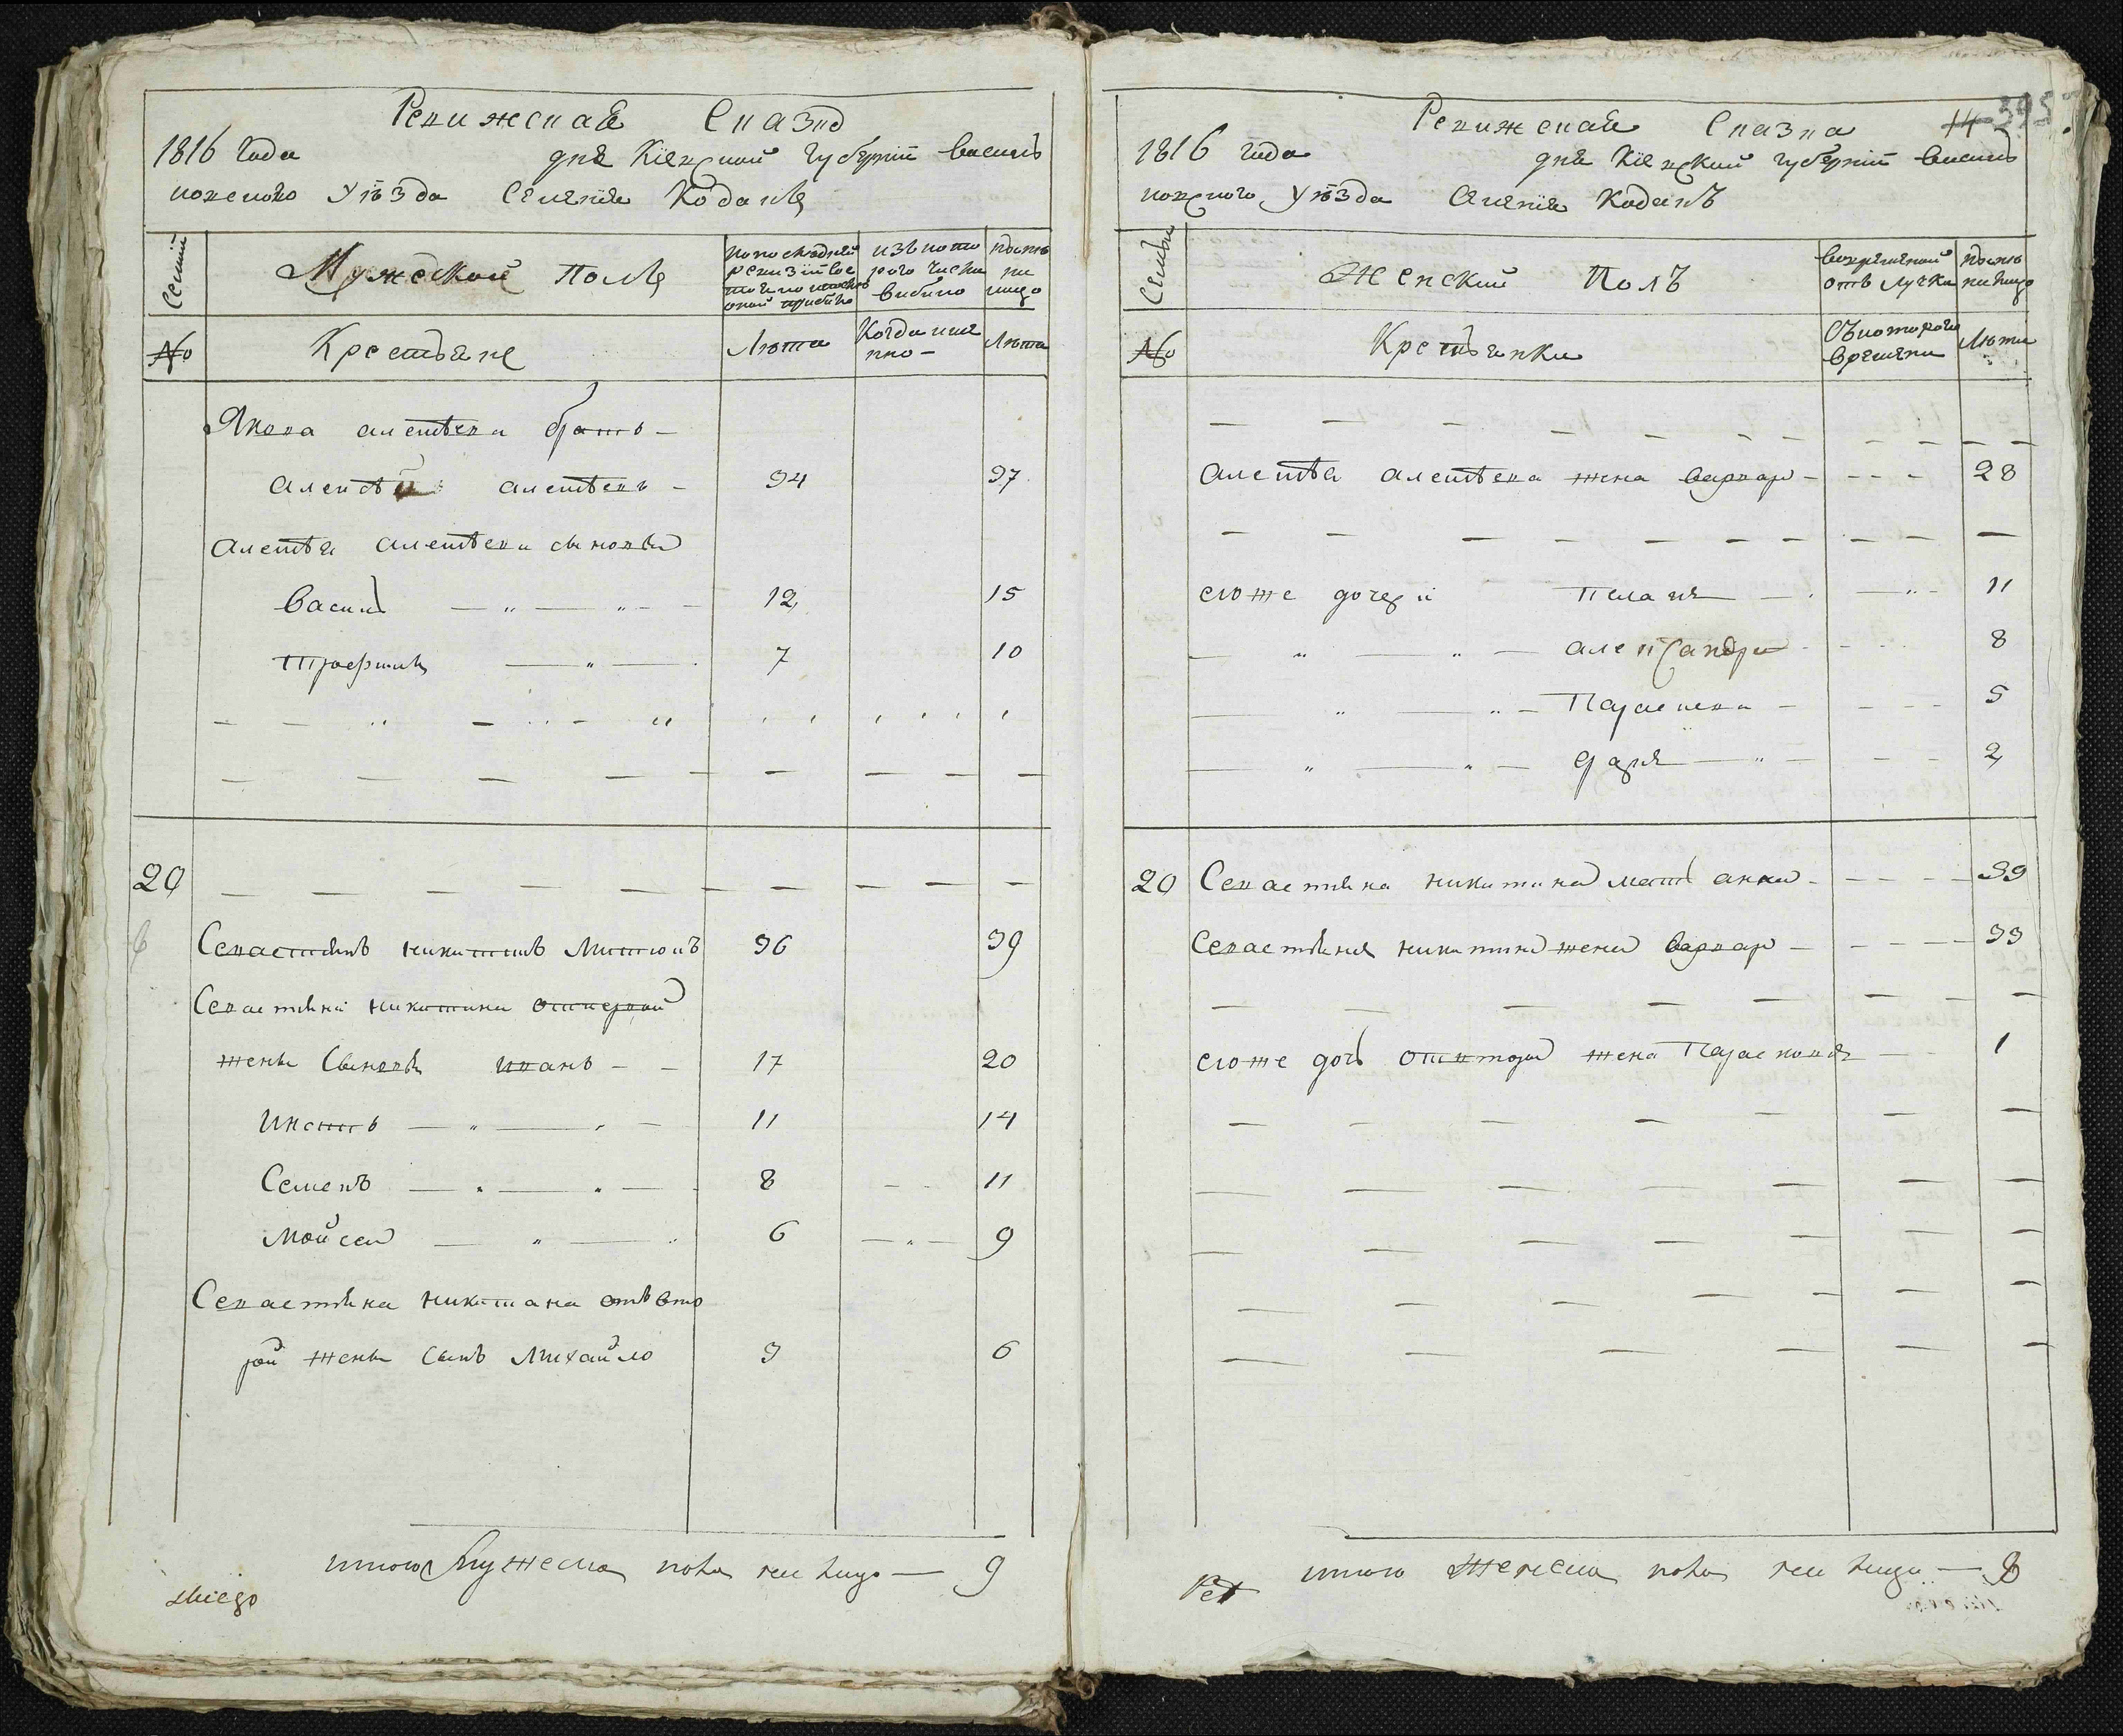 Ревижская Сказка
1816 Года дня Кіевской губерніи василь
ковского Уѣзда Селенія Коданъ
Семьи
Мужеской полъ
по последней ревизіи состояло и после оной прибыло
изъ того числа выбыло
ныне на лицо
№
Крестьяне
Лѣта
Когда имянно
Лѣта
Якова алексѣева братъ
алексѣй алексѣевъ 34 37
алексѣя алексѣева сыновья
василь 12 15
Трофимъ 7 10
20
Севастіянъ никитинъ 36 39
Севастіяна никитина отпервой
жены Сыновья иванъ 17 20
игнатъ 11 14
Семенъ 8 11
мойсей 6 9
Севастіяна никитина отъвто
рой жены сынъ михайло 3 6
итого мужеска пола на лицо 9
Ревижская Сказка
14 395
1816 года дня Кіевской губерніи василь
ковского Уѣзда Селенія Коданъ
Семьи
Женский Полъ
вовременной отлучки
ныне на лицо
№
Крестьянки
Съ которого времяни
Лѣта
алексѣя алексѣева жена варвар 28
егоже дочери пелагія 11
александра 8
Параскева 5
дарія 2
20 Севастіяна никитина мать анна 59
Севастіяна никитина жена варвар 33
егоже дочь отвторой жена Парасковия 1
итого женска пола на лицо 8
Рев